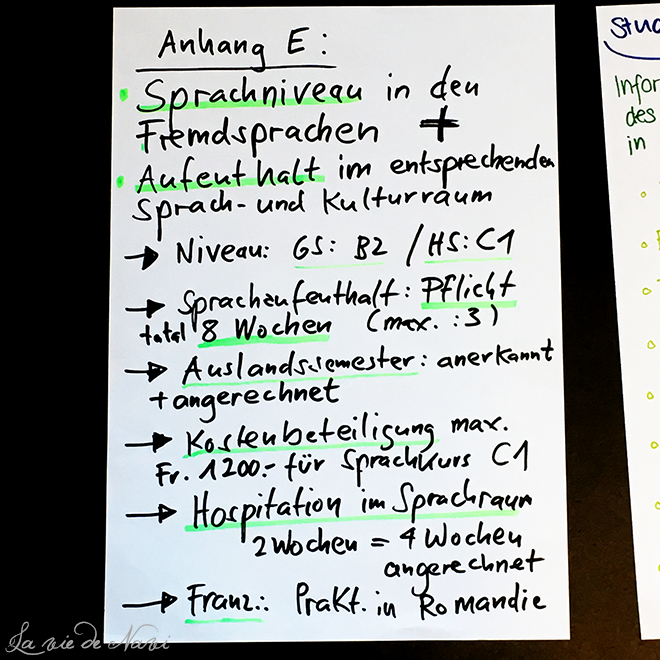 Anhang E:
• Sprachniveau in den
Fremdsprachen +
• Aufenthalt im entsprechenden
Sprach- und Kulturraum
→ Niveau: GS: B2 / HS: C1
→ Sprachaufenthalt: Pflicht
total 8 Wochen (max.:3)
→ Auslandssemester: anerkannt
+ angerechnet
→ Kostenbeteiligung max.
Fr. 1200.- für Sprachkurs C1
→ Hospitation im Sprachraum
2 Wochen = 4 Wochen
angerechnet
→ Franz.: Prakt. in Romandie
Stud
Infor
des
in
La vie de Navi